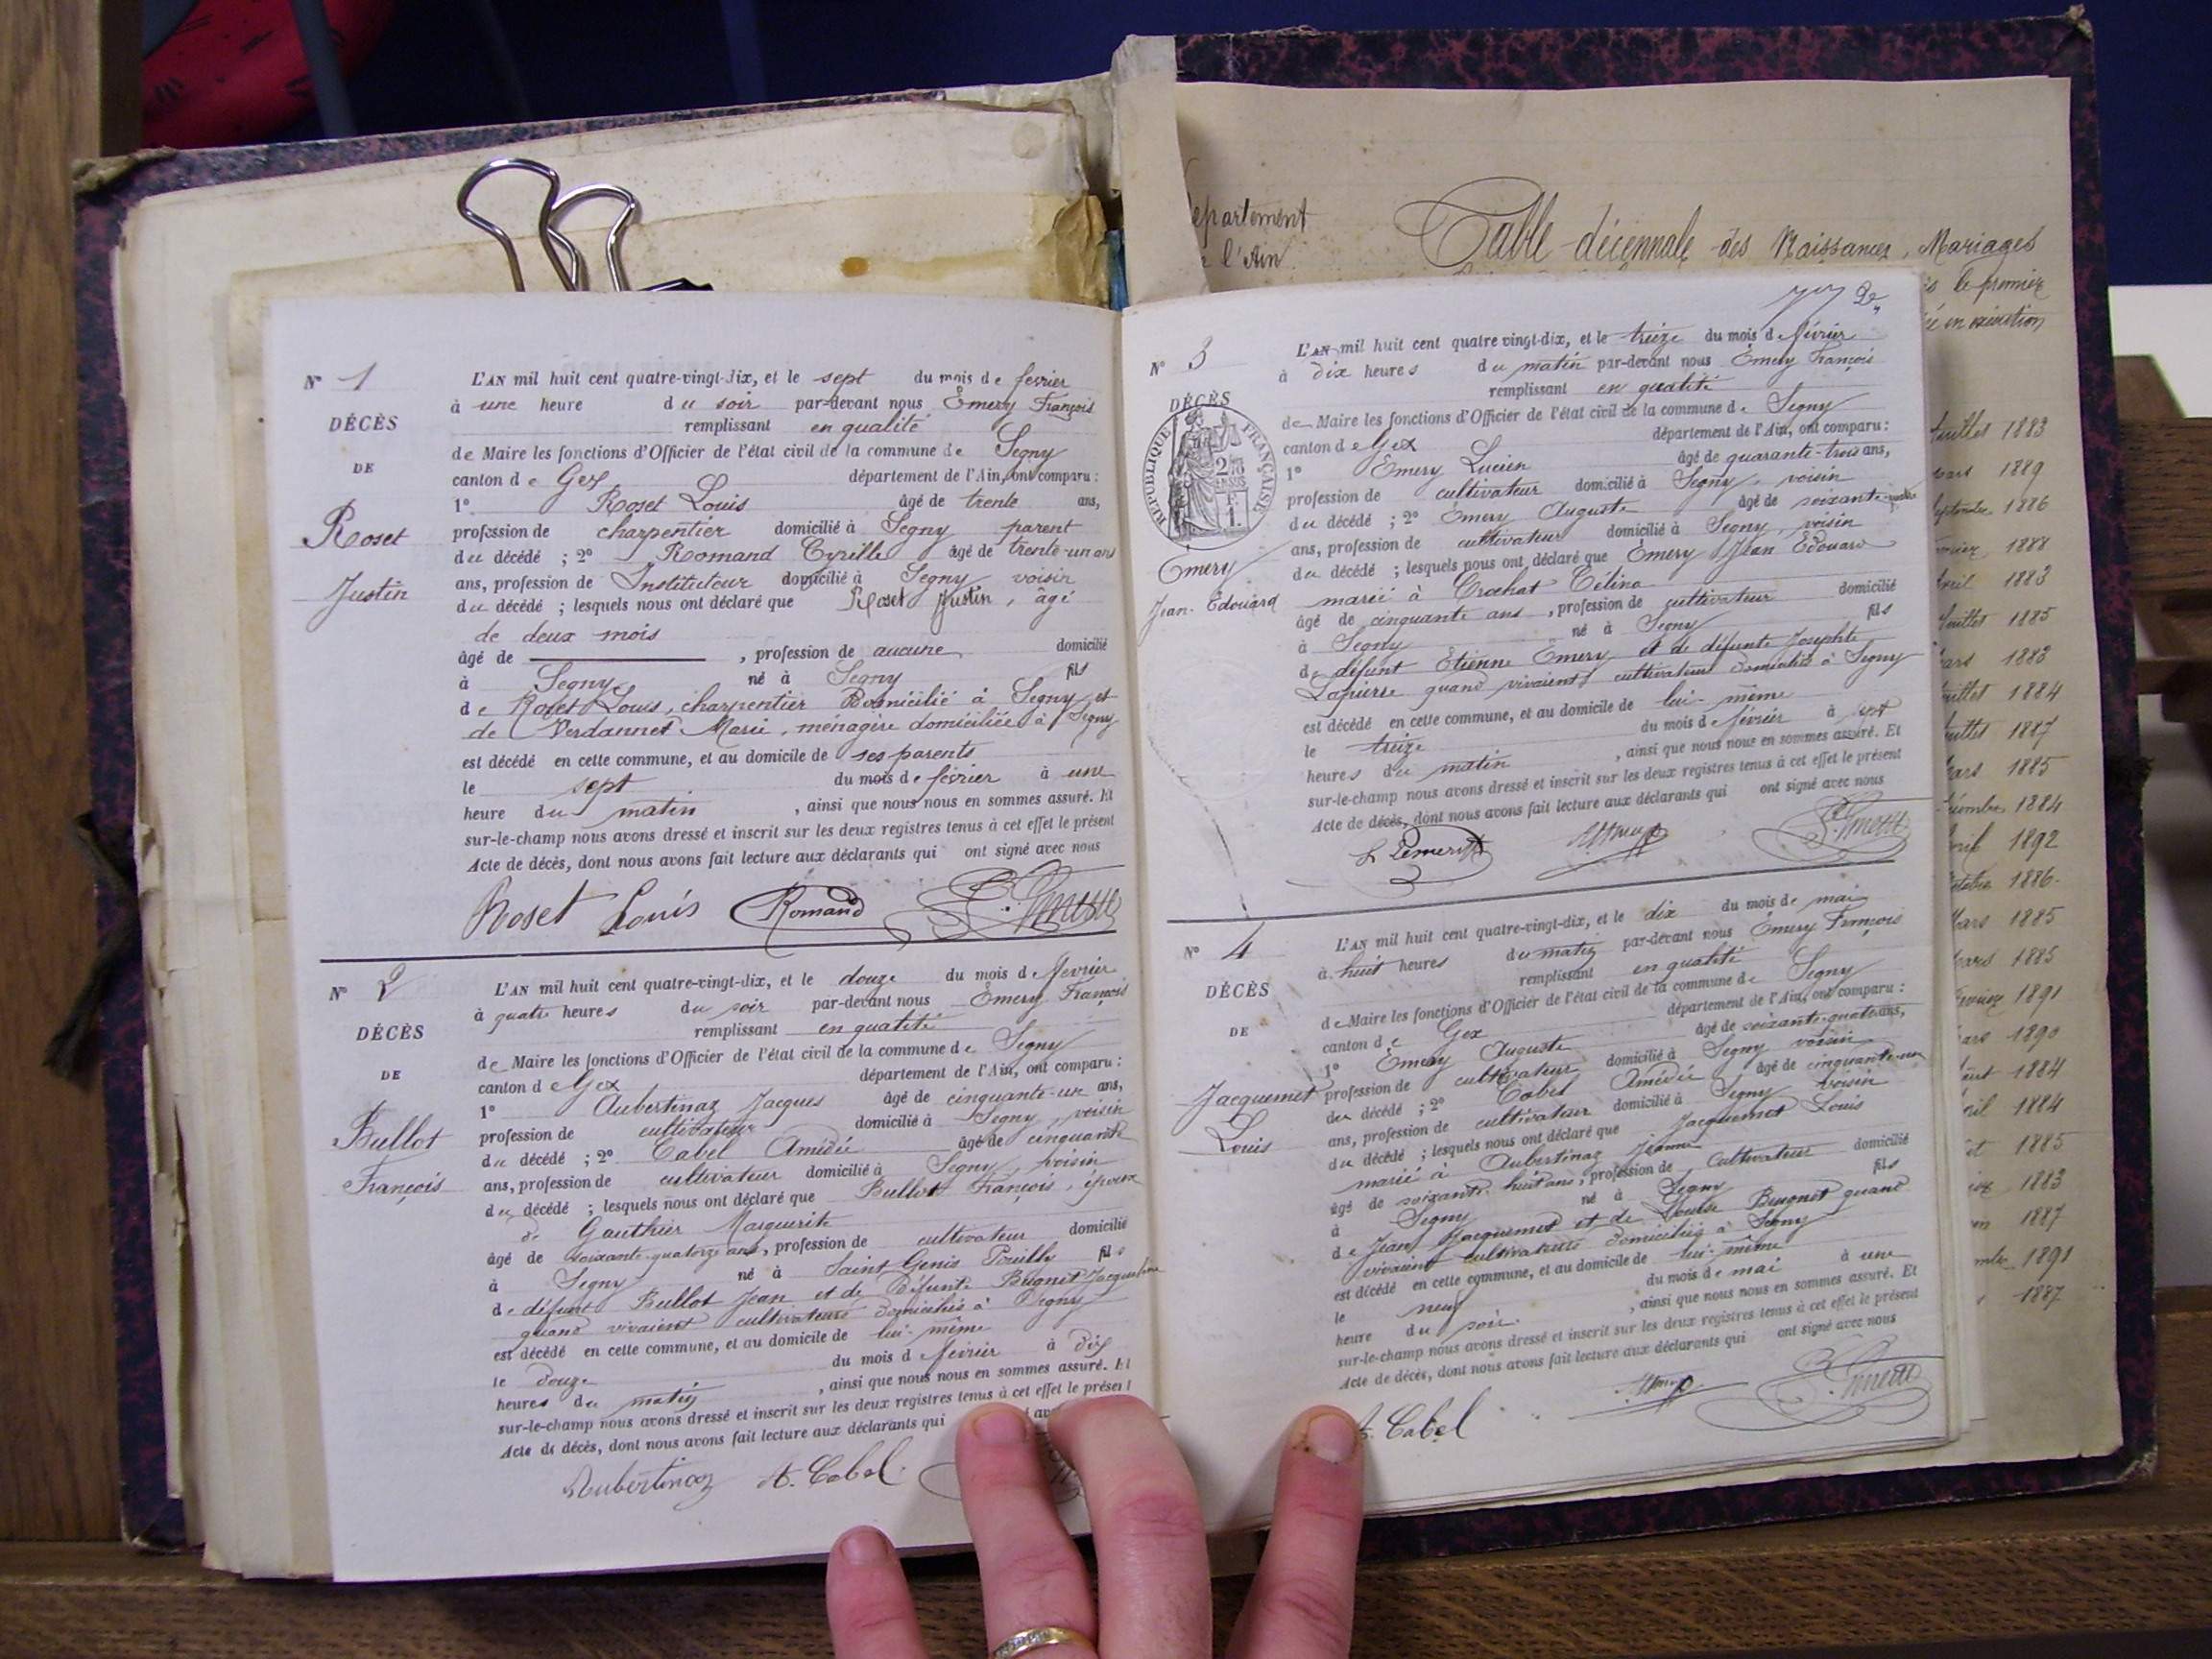 N° 1
DÉCÈS
DE
Roset
Justin
L'AN mil huit cent quatre-vingt-dix, et le sept du mois de fevrier
à une heure du soir par-devant nous Emery François
remplissant en qualité
de Maire les fonctions d'Officier de l'état civil de la commune de Segny
canton de Gex département de l'Ain, ont comparu :
1° Roset Louis âgé de trente ans,
profession de charpentier domicilié à Segny parent
du décédé ; 2° Romand Cyrille âgé de trente-un ans
ans, profession de Instituteur domicilié à Segny voisin
du décédé ; lesquels nous ont déclaré que Roset Justin, âgé
de deux mois
âgé de , profession de aucune domicilié
à Segny né à Segny fils
de Roset Louis, charpentier domicilié à Segny et
de Verdannet Marie, ménagère domiciliée à Segny
est décédé en cette commune, et au domicile de ses parents
le sept du mois de février à une
heure du matin , ainsi que nous nous en sommes assuré. Et
sur-le-champ nous avons dressé et inscrit sur les deux registres tenus à cet effet le présent
Acte de décès, dont nous avons fait lecture aux déclarants qui ont signé avec nous
Roset Louis Romand
N° 2
DÉCÈS
DE
Bullot
François
L'AN mil huit cent quatre-vingt-dix, et le douze du mois de fevrier
à quatre heures du soir par-devant nous Emery François
remplissant en qualité
de Maire les fonctions d'Officier de l'état civil de la commune de Segny
canton de Gex département de l'Ain, ont comparu :
1° Aubertinaz Jacques âgé de cinquante-un ans,
profession de cultivateur domicilié à Segny, voisin
du décédé ; 2° Cabel Amédée âgé de cinquante
ans, profession de cultivateur domicilié à Segny, voisin
du décédé ; lesquels nous ont déclaré que Bullot François, époux
de Gauthier Marguerite
âgé de soixante-quatorze ans, profession de cultivateur domicilié
à Segny né à Saint Genis Pouilly fils
de défunt Bullot Jean et de défunte Bugnet Jacqueline
quand vivaient cultivateurs domiciliés à Segny
est décédé en cette commune, et au domicile de lui-même
le douze du mois de fevrier à dix
heures du matin , ainsi que nous nous en sommes assuré. Et
sur-le-champ nous avons dressé et inscrit sur les deux registres tenus à cet effet le présent
Acte de décès, dont nous avons fait lecture aux déclarants qui
Aubertinaz A. Cabel
N° 3
DÉCÈS
RÉPUBLIQUE FRANÇAISE
Emery
Jean-Édouard
L'AN mil huit cent quatre vingt-dix, et le treize du mois de février
à dix heures du matin par-devant nous Emery François
remplissant en qualité
de Maire les fonctions d'Officier de l'état civil de la commune de Segny
canton de Gex département de l'Ain, ont comparu :
1° Emery Lucien âgé de quarante-trois ans,
profession de cultivateur domicilié à Segny, voisin
du décédé ; 2° Emery Auguste âgé de soixante-quatre
ans, profession de cultivateur domicilié à Segny, voisin
du décédé ; lesquels nous ont déclaré que Emery Jean Édouard
marié à Crochat Célina
âgé de cinquante ans, profession de cultivateur domicilié
à Segny né à Segny fils
de défunt Étienne Emery et de défunte Josephte
Lapierre quand vivaient cultivateurs domiciliés à Segny
est décédé en cette commune, et au domicile de lui-même
le treize du mois de février à sept
heures du matin , ainsi que nous nous en sommes assuré. Et
sur-le-champ nous avons dressé et inscrit sur les deux registres tenus à cet effet le présent
Acte de décès, dont nous avons fait lecture aux déclarants qui ont signé avec nous
N° 4
DÉCÈS
DE
Jacquemet
Louis
L'AN mil huit cent quatre-vingt-dix, et le dix du mois de mai
à huit heures du matin par-devant nous Emery François
remplissant en qualité
de Maire les fonctions d'Officier de l'état civil de la commune de Segny
canton de Gex département de l'Ain, ont comparu :
1° Emery Auguste âgé de soixante-quatre ans,
profession de cultivateur domicilié à Segny voisin
du décédé ; 2° Cabel Amédée âgé de cinquante-un
ans, profession de cultivateur domicilié à Segny voisin
du décédé ; lesquels nous ont déclaré que Jacquemet Louis
marié à Aubertinaz Jeanne
âgé de soixante-huit ans, profession de cultivateur domicilié
à Segny né à Segny fils
de Jean Jacquemet et de Louise Bugnet quand
vivaient cultivateurs domiciliés à Segny
est décédé en cette commune, et au domicile de lui-même
le neuf du mois de mai à une
heure du soir , ainsi que nous nous en sommes assuré. Et
sur-le-champ nous avons dressé et inscrit sur les deux registres tenus à cet effet le présent
Acte de décès, dont nous avons fait lecture aux déclarants qui ont signé avec nous
A. Cabel
epartement
l'Ain
Table décennale des Naissances, Mariages
le premier
en exécution
Juillet 1883
mars 1889
Septembre 1886
1888
Avril 1883
Juillet 1885
Mars 1883
Juillet 1884
Juillet 1887
Mars 1885
1884
Avril 1892
Octobre 1886
Mars 1885
Mars 1885
1891
Mars 1890
1884
Avril 1884
1885
1883
1887
1891
1887